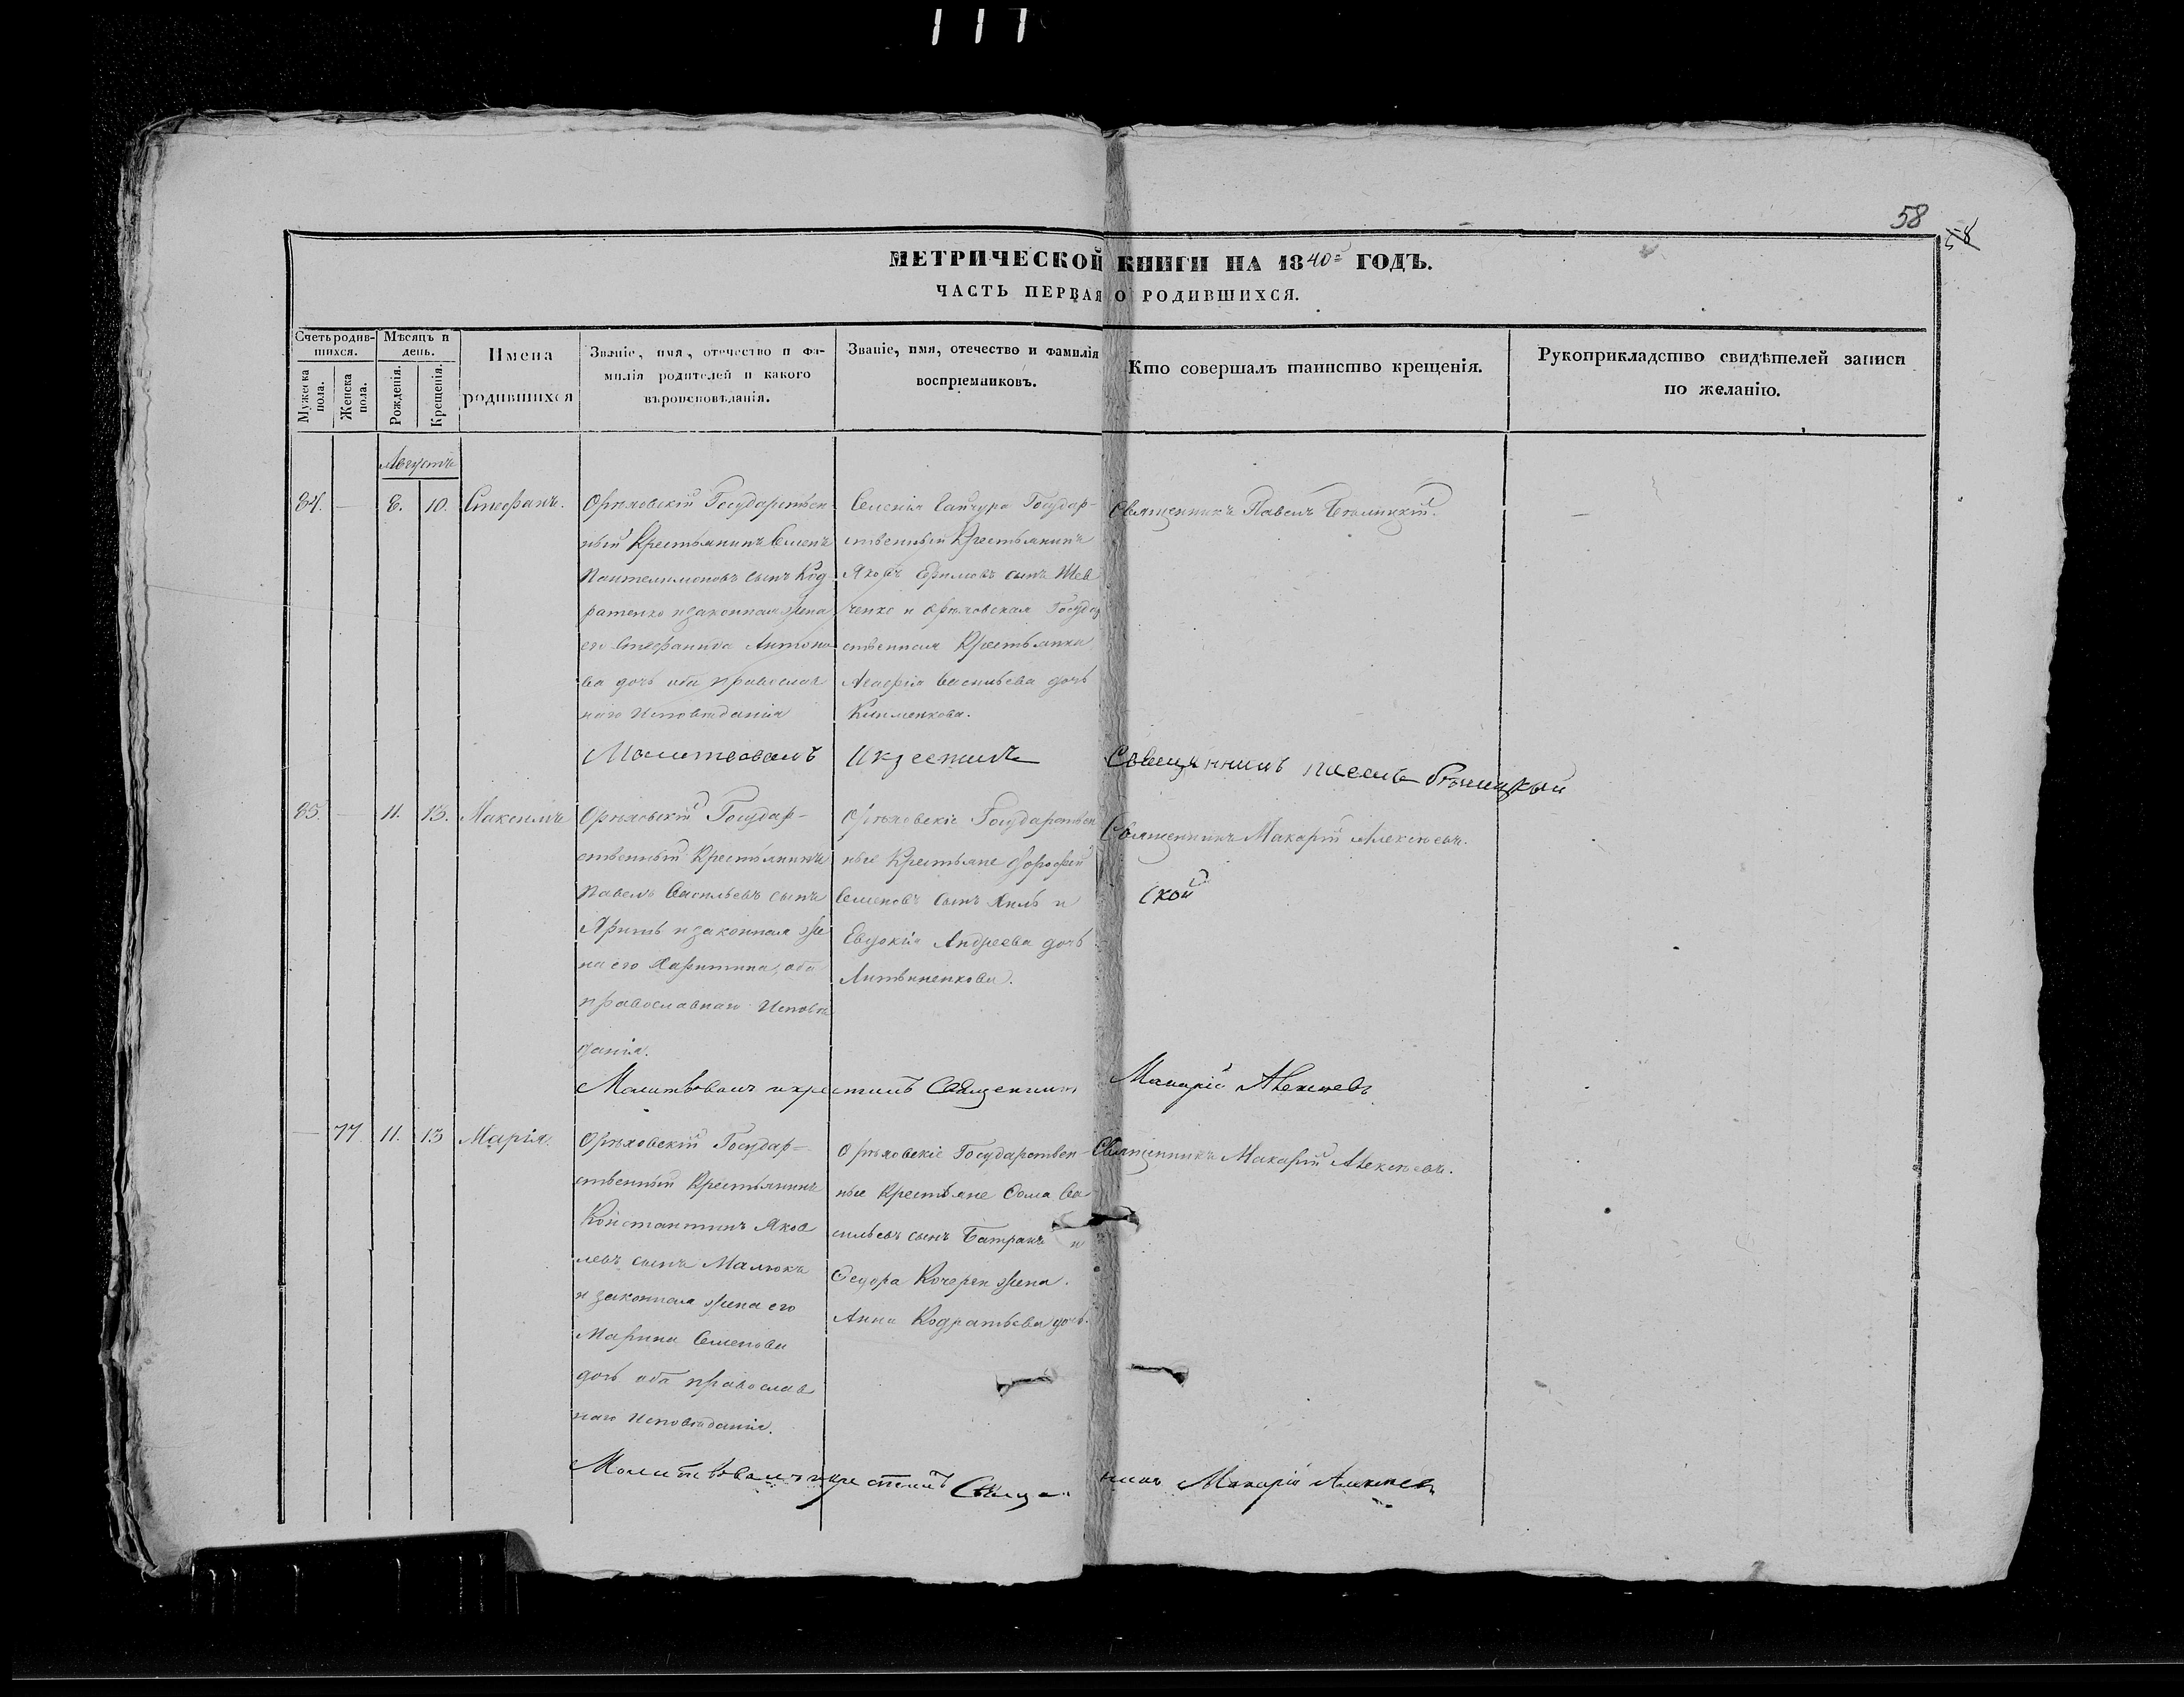 58
58
МЕТРИЧЕСКОЙ КНИГИ НА 1840й ГОДЪ.
ЧАСТЬ ПЕРВАЯ О РОДИВШИХСЯ.
Счетъ родив-
шихся.
Мужеска
пола.
Женска
пола.
Мѣсяцъ и
день.
Рожденія.
Крещенія.
Имена
родившихся
Званіе, имя, отечество и фа-
милія родителей и какого
вѣроисповѣданія.
Званіе, имя, отечество и фамилія
воспріемниковъ.
Кто совершалъ таинство крещенія.
Рукоприкладство свидѣтелей записи
по желанію.
Августъ
84. — 8. 10. Стефанъ.
Орѣховскій Государствен
ный Крестьянинъ Семенъ
Пантелимоновъ сынъ Код-
ратенко и законная жена
его Стефанида Антоно
ва дочь оба православ
наго Исповѣданія
Селенія Государ-
ственный Крестьянинъ
Яковъ Ефимовъ сынъ Шев
ченко и Орѣховская Государ
ственная Крестьянка
Агафія Васильева дочь
Клименкова.
Священникъ Павелъ Бѣлицкій.
Молитвовалъ и крестилъ Священникъ Павелъ Бѣлицкой
85. — 11. 13. Максимъ
Орѣховскій Государ-
ственный Крестьянинъ
Павелъ Васильевъ сынъ
и законная же
на его Харитина, оба
православнаго Исповѣ
данія.
Орѣховскіе Государствен
ные Крестьяне Дорофей
Семеновъ сынъ и
Евдокія Андреева дочь
Литвиненкова.
Священникъ Макарій Алексѣевъ.
ской
Молитвовалъ и крестилъ Священникъ Макарій Алексѣевъ
— 77 11. 13 Марія.
Орѣховскій Государ-
ственный Крестьянинъ
Константинъ Яков
левъ сынъ Малюкъ
и законная жена его
Марина Семенова
дочь оба православ
наго Исповѣданія.
Орѣховскіе Государствен-
ные Крестьяне Фома Ва-
сильевъ сынъ Батракъ и
Федора жена
Анна Кодратьева дочь.
Священникъ Макарій Алексѣевъ.
Молитвовалъ и крестилъ Священникъ Макарій Алексѣевъ